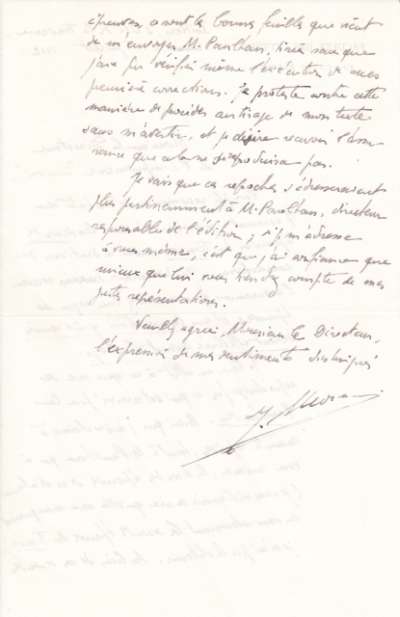 épreuves avant les bonnes feuilles que vient
de m'envoyer M. Paulhan, tirées sans que
j'aie pu vérifier même l'exécution de mes
premières corrections. Je proteste contre cette
manière de procéder au tirage de mon texte
sans m'avertir, et je désire recevoir l'assu-
rance que cela ne se reproduira pas.
Je sais que ces reproches s'adresseraient
plus justement à M. Paulhan, directeur
responsable de l'édition ; si je m'adresse
à vous-même, c'est que j'ai confiance que
mieux que lui vous tiendrez compte de mes
justes représentations.
Veuillez agréer, Monsieur le Directeur,
l'expression de mes sentiments distingués